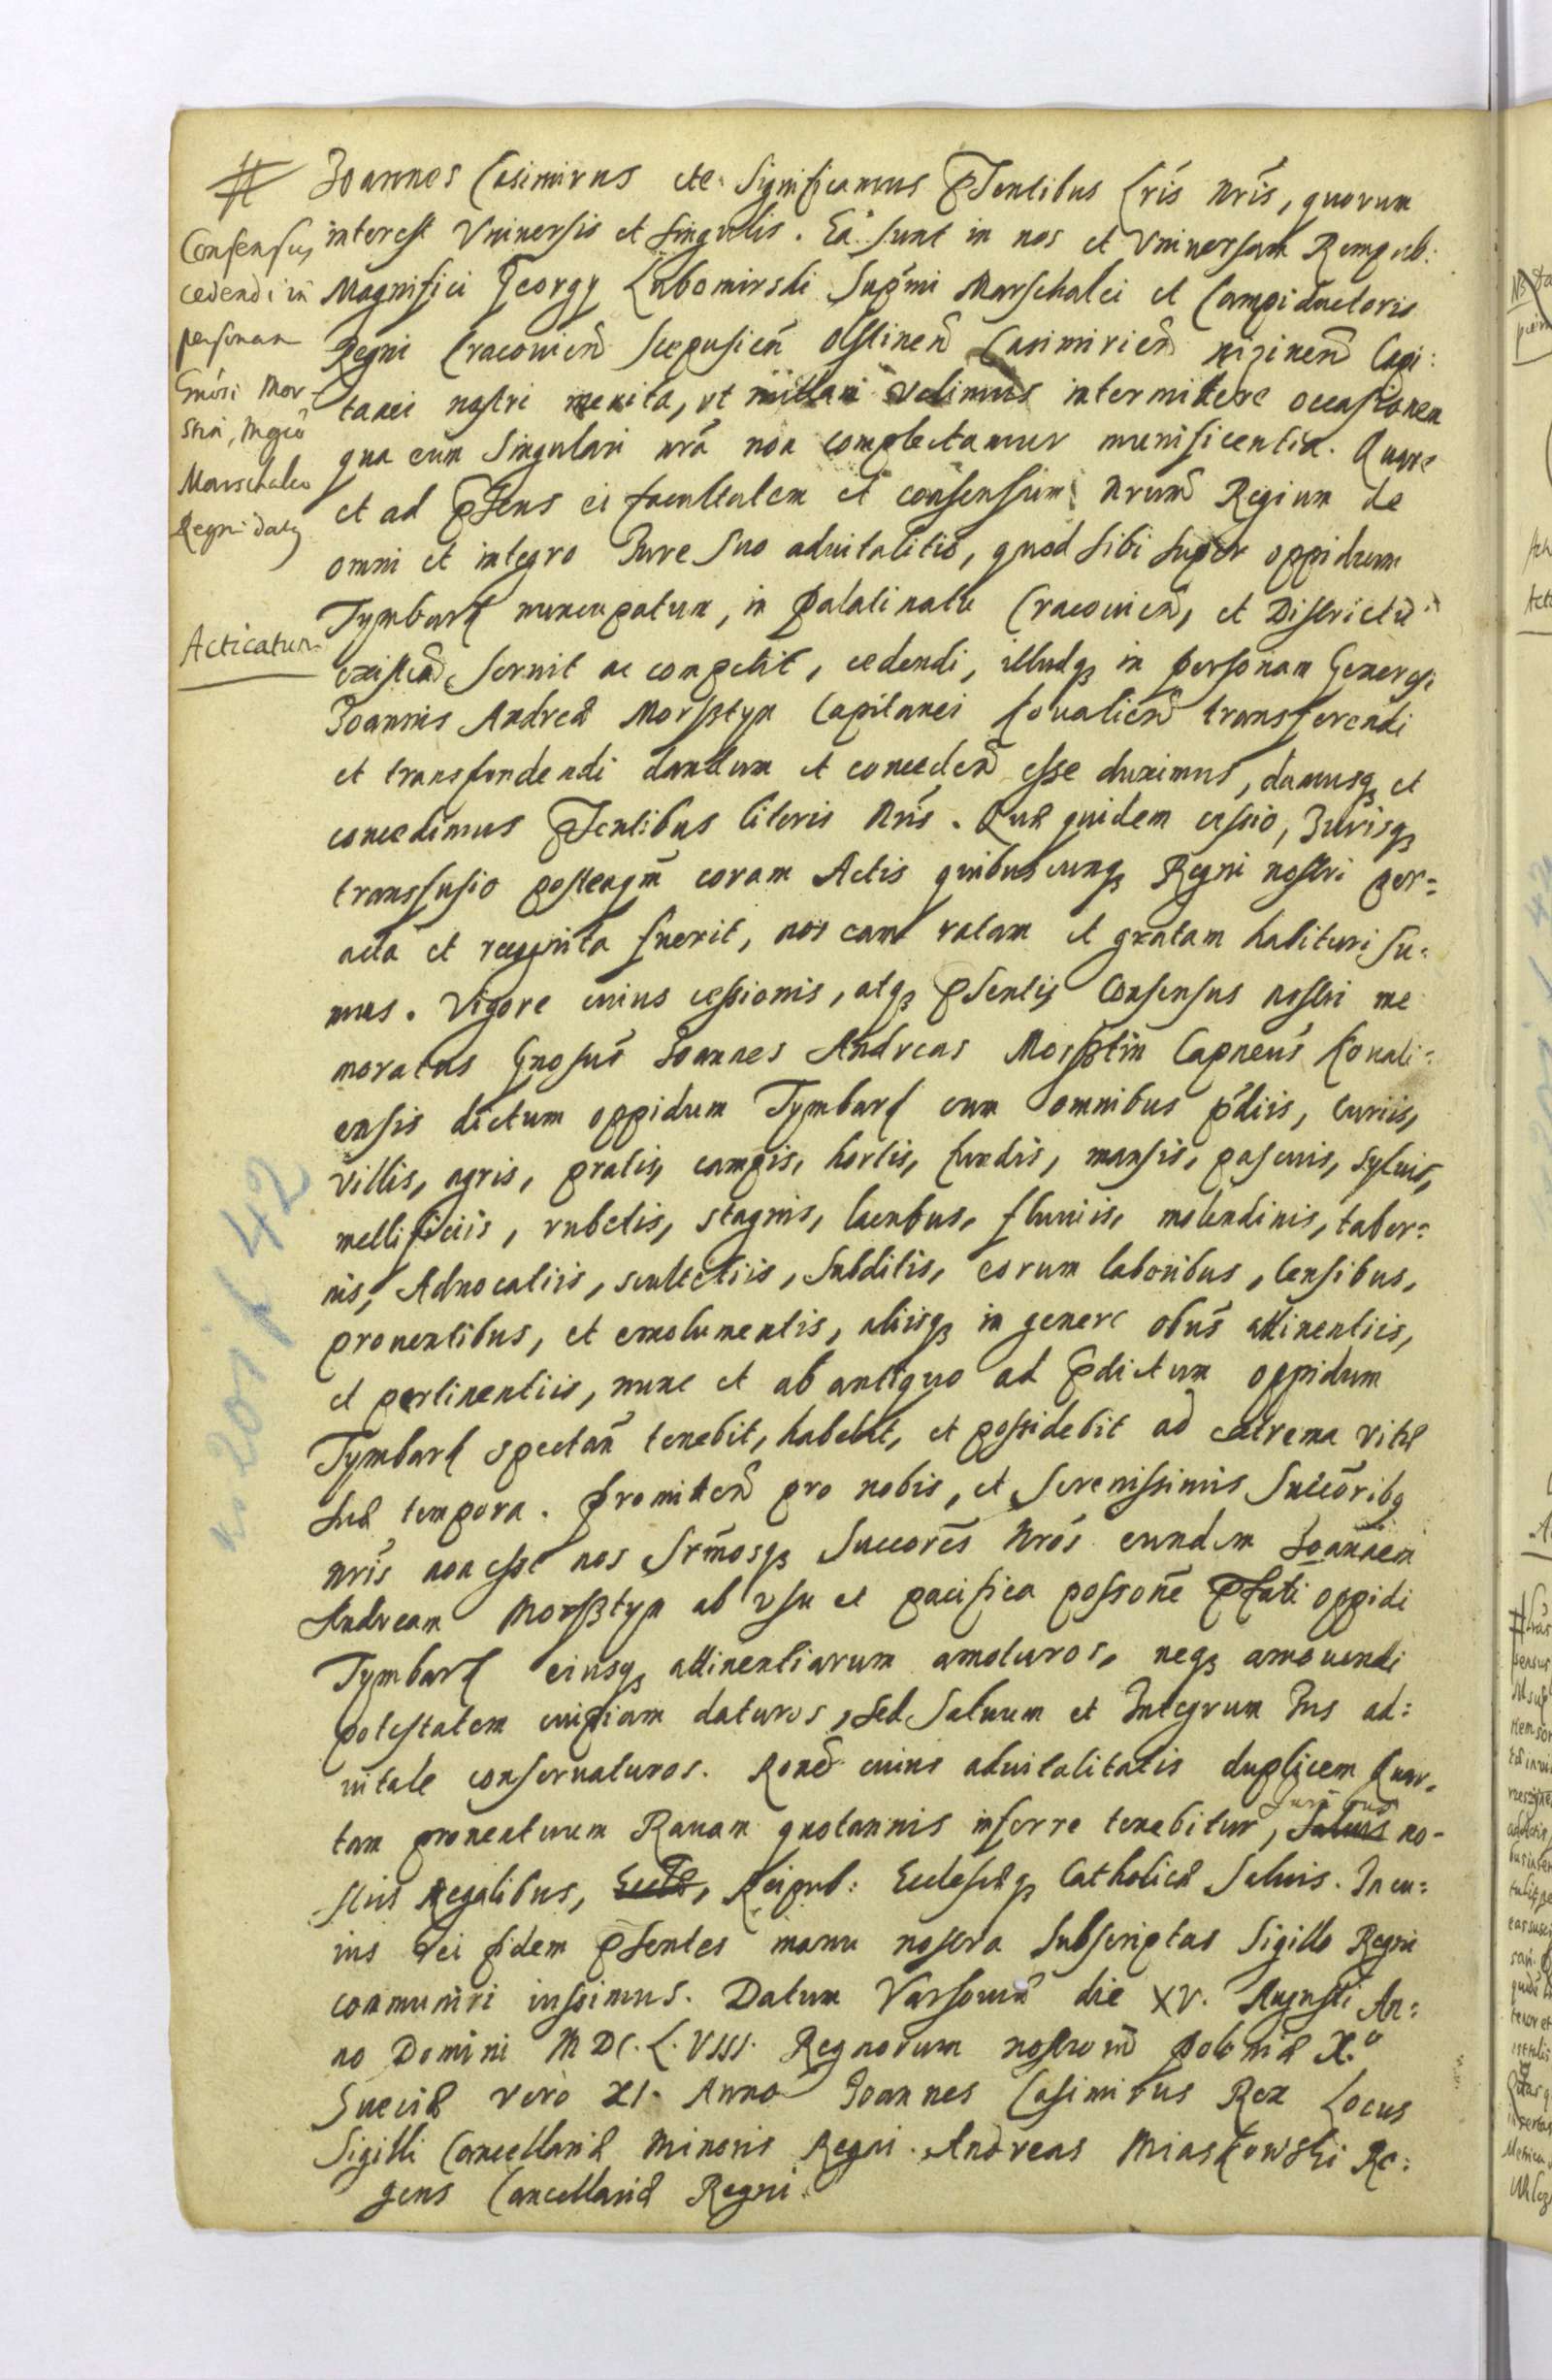 #
Consensus
cedendi in
personam
Gnōsi Mor-
stin, Mgco
Marschalco
Regni datq
Acticatum
Joannes Casimirus etc. Significamus Psentibus Lris nris, quorum
interest Vniuersis et singulis. Ea sunt in nos et Vniuersam Rempub:
Magnifici Georgy Lubomirski Supmi Marschalci et Campiductoris
Regni Cracouien Scepusien Olstinen Casimirien niżinen Capi:
tanei nostri merita, vt nullam velimus intermittere occasionem
qua eum Singulari nra non complectamur munificentia. Quare
et ad Psens ei facultatem et consensum nrum Regium de
omni et integro Jure suo aduitalitio, quod sibi super oppidum
Tymbark nuncupatum, in Palatinatu Cracouien, et Districtu
existen seruit ac competit, cedendi, illudq in personam Generosi
Joannis Andreæ Morsztyn Capitanei Koualien transferendi
et transfundendi dandum et conceden esse duximus, damusq et
concedimus Psentibus literis nris. Quæ quidem cessio, Jurisq
transfusio posteaqm coram Actis quibuscunq Regni nostri per=
acta et recognita fuerit, nos eam ratam et gratam habituri su=
mus. Vigore cuius cessionis, atq Psentis Consensus nostri me
moratus Gnosus Joannes Andreas Morsztin Capneus Kouali=
ensis dictum oppidum Tymbark cum omnibus pdiis, curiis,
villis, agris, pratis, campis, hortis, fundis, mansis, pascuis, syluis,
mellificiis, rubetis, stagnis, lacubus, fluuiis, molendinis, taber=
nis, Aduocatiis, scultetiis, subditis, eorum laboribus, censibus,
prouentibus, et emolumentis, aliisq in genere obus attinentiis,
et pertinentiis, nunc et ab antiquo ad Pdictum oppidum
Tymbark spectan tenebit, habebit, et possidebit ad extrema vitæ
suæ tempora. Promitten pro nobis, et Serenissimis Succoribq
nris non esse nos Srmosq Succores nros eundem Joannem
Andream Morsztyn ab vsu et pacifica possone Pfati oppidi
Tymbark eiusq attinentiarum amoturos, neq amouendi
potestatem cuipiam daturos, sed saluum et Integrum Jus ad=
uitale conseruaturos. Rone cuius aduitalitatis duplicem Quar=
tam prouentuum Rauam quotannis inferre tenebitur, Saluis Juribus no-
stris Regalibus, Eccle, Reipub: Ecclesiæq Catholicæ Saluis. In cu=
ius rei fidem Psentes manu nostra Subscriptas Sigillo Regni
communiri iussimus. Datum Varsouiæ die XV. Augusti An=
no Domini MDC.L.VIII. Regnorum nostrorum Poloniæ X.o
Sueciæ vero XI. Anno Joannes Casimirus Rex Locus
Sigilli Cancellariæ Minoris Regni. Andreas Miaskowski Re=
gens Cancellariæ Regni.